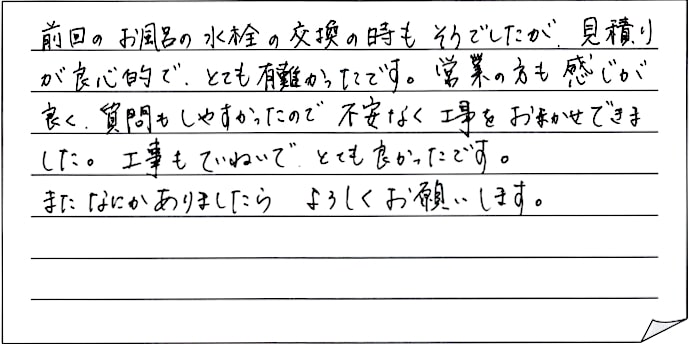 前回のお風呂の水栓の交換の時もそうでしたが、見積り
が良心的で、とても有難かったです。営業の方も感じが
良く、質問もしやすかったので不安なく工事をおまかせできま
した。工事もていねいで、とても良かったです。
またなにかありましたら よろしくお願いします。